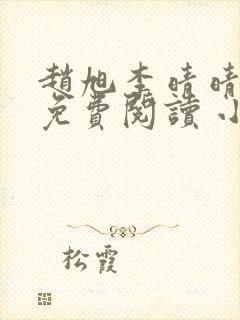 趙旭李晴晴
免費閱讀小
松霞